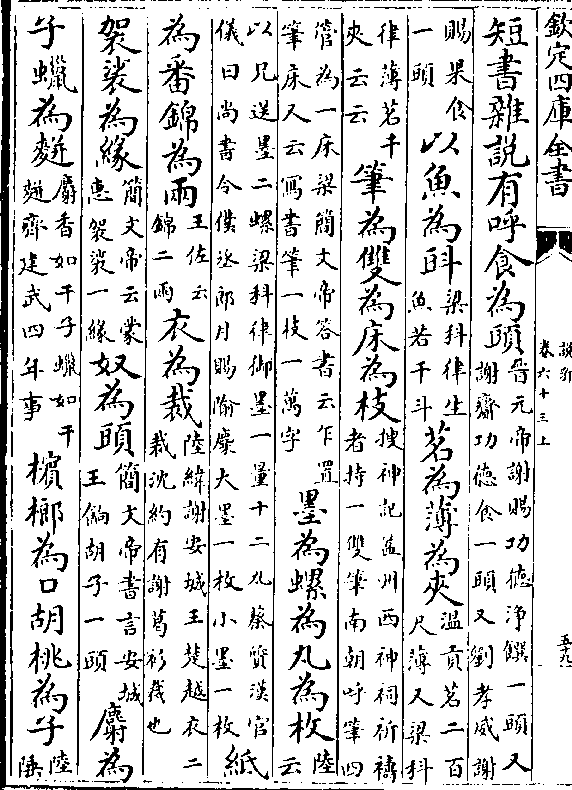 欽定四庫全書
說郛
卷六十三上
五十九
短書雜說有呼食為頭晉元帝謝賜功德淨饌一頭又謝齋功德食一頭又劉孝威謝
賜果食一頭以魚為㪷梁科律生魚若干斗茗為薄為夾溫貢茗二百尺薄又梁科
律薄茗千夾云云筆為雙為床為枝搜神記益州西神祠祈禱者持一雙筆南朝呼筆四
管為一床梁簡文帝答書云乍置筆床又云寫書筆一枝一萬字墨為螺為丸為枚陸云
以凡送墨二螺梁科律御墨一量十二丸蔡質漢官儀曰尚書令僕丞郎月賜隃麋大墨一枚小墨一枚紙
為番錦為兩王佐云錦二兩衣為裁陸緯謝安城王楚越衣二裁沈約有謝葛衫裁也
袈裟為緣簡文帝云蒙惠袈裟一緣奴為頭簡文帝書言安城王餉胡子一頭麝為
子蠟為䴵麝香如干子蠟如干䴵齊建武四年事檳榔為口胡桃為子陸陲